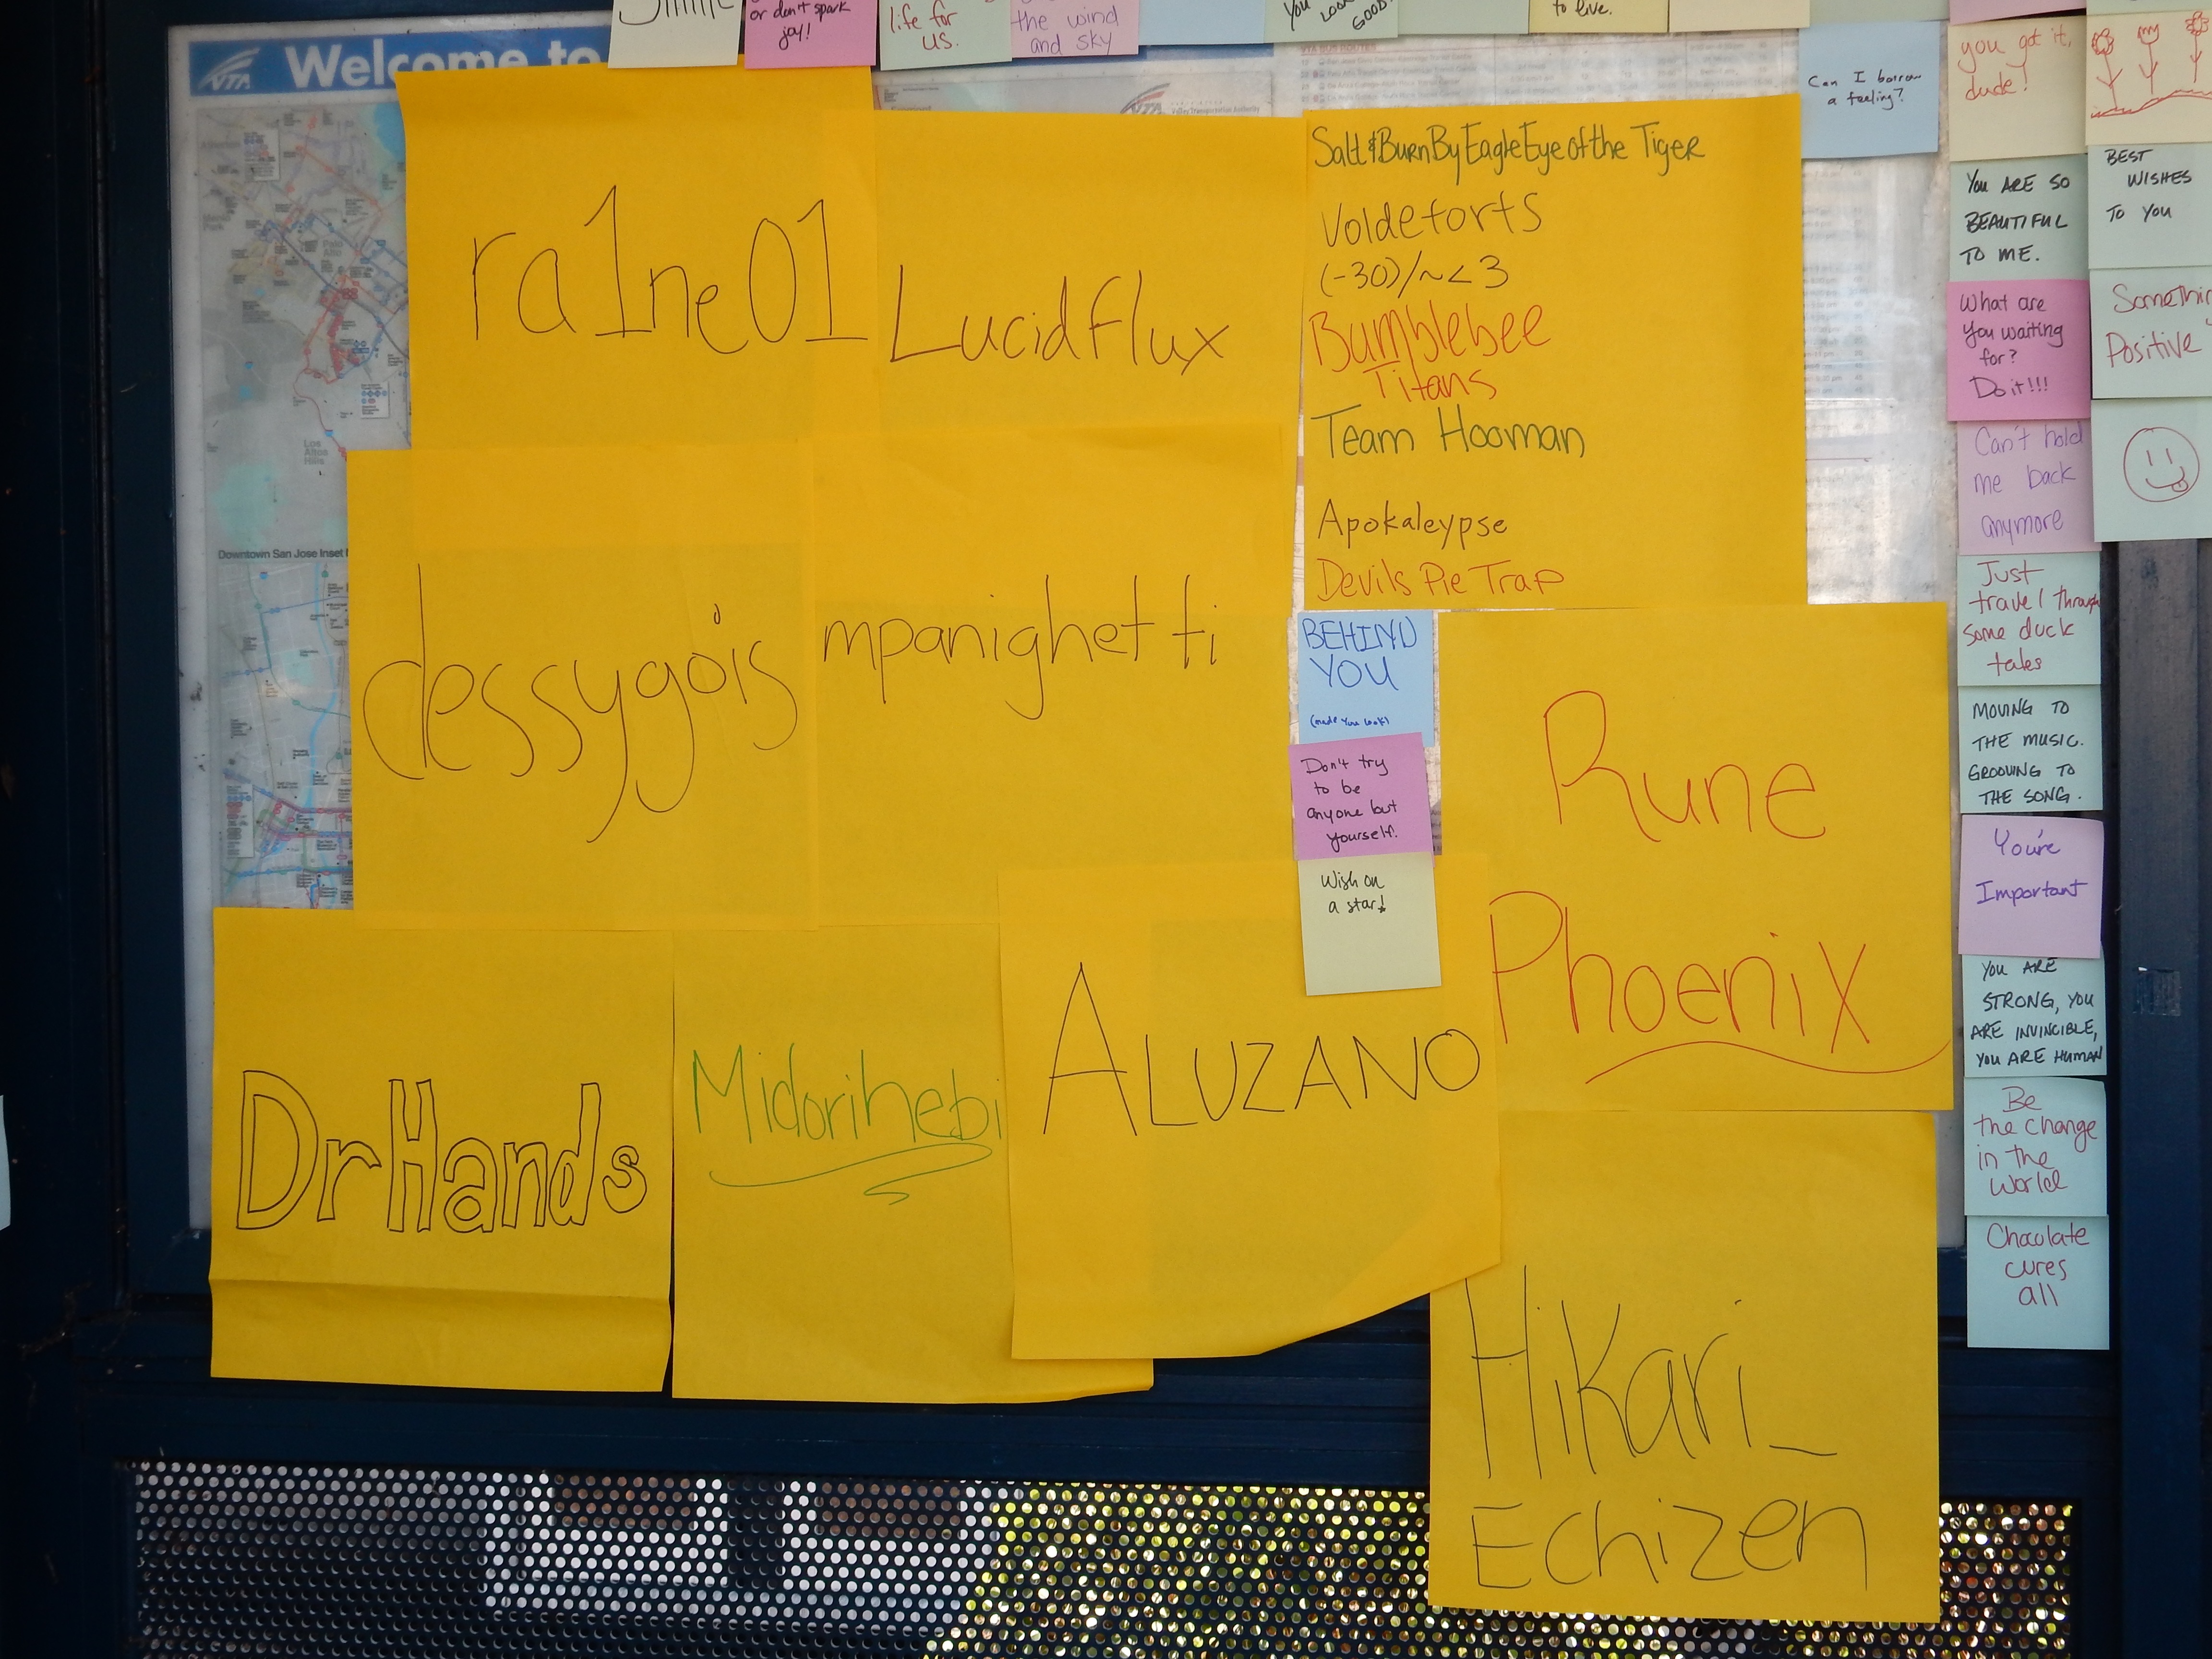 VTA Welcome to
or don't spark
joy!
life for
us.
the wind
and sky
YOU LOOK
GOOD!
to live.
Can I borrow
a feeling?
you got it,
dude!
ra1ne01
Lucidflux
Salt&BurnByEagleEyeoftheTiger
Voldetorts
(-30)/~<3
Bumblebee
Titans
Team Hooman
Apokaleypse
Devils Pie Trap
dessygois
mpanighetti
BEHIND
YOU
(made you look)
Don't try
to be
anyone but
yourself!
Wish on
a star!
Rune
Phoenix
DrHands
Midorihebi
ALUZANO
Hikari_
Echizen
YOU ARE SO
BEAUTIFUL
TO ME.
BEST
WISHES
TO YOU
What are
you waiting
for?
Do it!!!
Somethin
Positive
Can't hold
me back
anymore
Just
travel through
some duck
tales
MOVING TO
THE MUSIC.
GROOVING TO
THE SONG.
You're
Important
YOU ARE
STRONG, YOU
ARE INVINCIBLE,
YOU ARE HUMAN
Be
the change
in the
world
Chocolate
cures
all
Palo
Alto
Los
Altos
Hills
Downtown San Jose Inset